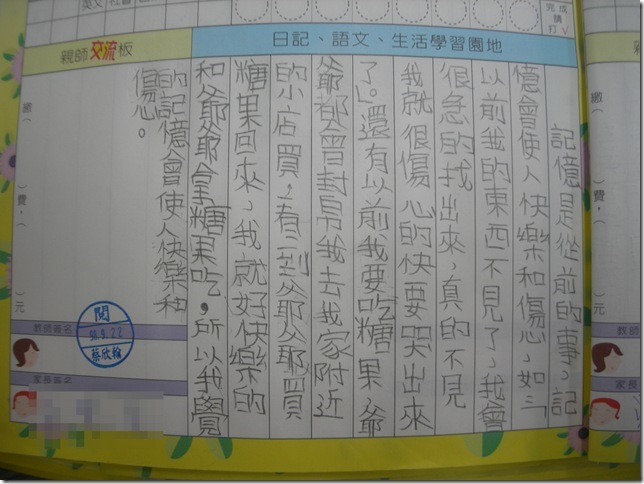 英文
社會
完成請打√
日記、語文、生活學習園地
親師交流板
記憶是從前的事，記
憶會使人快樂和傷心，如：「
以前我的東西不見了，我會
很急的找出來，真的不見
我就很傷心的快要哭出來
了。」還有以前我要吃糖果，爺
爺都會幫我去我家附近
的小店買，看到爺爺買
糖果回來，我就好快樂的
和爺爺拿糖果吃，所以我覺
的記憶會使人快樂和
傷心。
繳（　）費，（　）元
教師簽名
閱
98.9.22
家長簽名
繳（
）費，（
）元
教師
家長